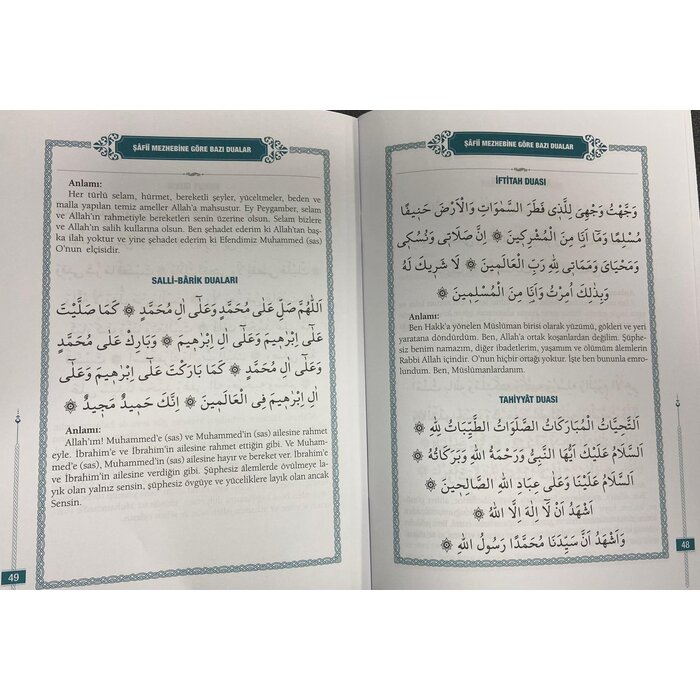 ŞÂFİİ MEZHEBİNE GÖRE BAZI DUALAR
İFTİTAH DUASI
وَجَّهْتُ وَجْهِىَ لِلَّذِى فَطَرَ السَّمٰوَاتِ وَالْاَرْضَ حَنِيفًا
مُسْلِمًا وَمَٓا اَنَا مِنَ الْمُشْرِكِينَ ۞ اِنَّ صَلَاتِى وَنُسُكِى
وَمَحْيَاىَ وَمَمَاتِى لِلّٰهِ رَبِّ الْعَالَمِينَ ۞ لَا شَرِيكَ لَهُ
وَبِذٰلِكَ اُمِرْتُ وَاَنَا مِنَ الْمُسْلِمِينَ ۞
Anlamı:
Ben Hakk'a yönelen Müslüman birisi olarak yüzümü, gökleri ve yeri
yaratana döndürdüm. Ben, Allah'a ortak koşanlardan değilim. Şüphe-
siz benim namazım, diğer ibadetlerim, yaşamım ve ölümüm âlemlerin
Rabbi Allah içindir. O'nun hiçbir ortağı yoktur. İşte ben bununla emro-
lundum. Ben, Müslümanlardanım.
TAHİYYÂT DUASI
اَلتَّحِيَّاتُ الْمُبَارَكَاتُ الصَّلَوَاتُ الطَّيِّبَاتُ لِلّٰهِ ۞
اَلسَّلَامُ عَلَيْكَ اَيُّهَا النَّبِىُّ وَرَحْمَةُ اللهِ وَبَرَكَاتُهُ ۞
اَلسَّلَامُ عَلَيْنَا وَعَلٰى عِبَادِ اللهِ الصَّالِحِينَ ۞
اَشْهَدُ اَنْ لَٓا اِلٰهَ اِلَّا اللهُ ۞
وَاَشْهَدُ اَنَّ سَيِّدَنَا مُحَمَّدًا رَسُولُ اللهِ ۞
48
ŞÂFİİ MEZHEBİNE GÖRE BAZI DUALAR
Anlamı:
Her türlü selam, hürmet, bereketli şeyler, yüceltmeler, beden ve
malla yapılan temiz ameller Allah'a mahsustur. Ey Peygamber, selam
ve Allah'ın rahmetiyle bereketleri senin üzerine olsun. Selam bizlere
ve Allah'ın salih kullarına olsun. Ben şehadet ederim ki Allah'tan baş-
ka ilah yoktur ve yine şehadet ederim ki Efendimiz Muhammed (sas)
O'nun elçisidir.
SALLİ-BÂRİK DUALARI
اَللّٰهُمَّ صَلِّ عَلٰى مُحَمَّدٍ وَعَلٰٓى اٰلِ مُحَمَّدٍ ۞ كَمَا صَلَّيْتَ
عَلٰٓى اِبْرٰهِيمَ وَعَلٰٓى اٰلِ اِبْرٰهِيمَ ۞ وَبَارِكْ عَلٰى مُحَمَّدٍ
وَعَلٰٓى اٰلِ مُحَمَّدٍ ۞ كَمَا بَارَكْتَ عَلٰٓى اِبْرٰهِيمَ وَعَلٰٓى
اٰلِ اِبْرٰهِيمَ فِى الْعَالَمِينَ ۞ اِنَّكَ حَمِيدٌ مَجِيدٌ ۞
Anlamı:
Allah'ım! Muhammed'e (sas) ve Muhammed'in (sas) ailesine rahmet
eyle. İbrahim'e ve İbrahim'in ailesine rahmet ettiğin gibi. Ve Muham-
med'e (sas), Muhammed'in (sas) ailesine hayır ve bereket ver. İbrahim'e
ve İbrahim'in ailesine verdiğin gibi. Şüphesiz âlemlerde övülmeye la-
yık olan yalnız sensin, şüphesiz övgüye ve yüceliklere layık olan ancak
Sensin.
49